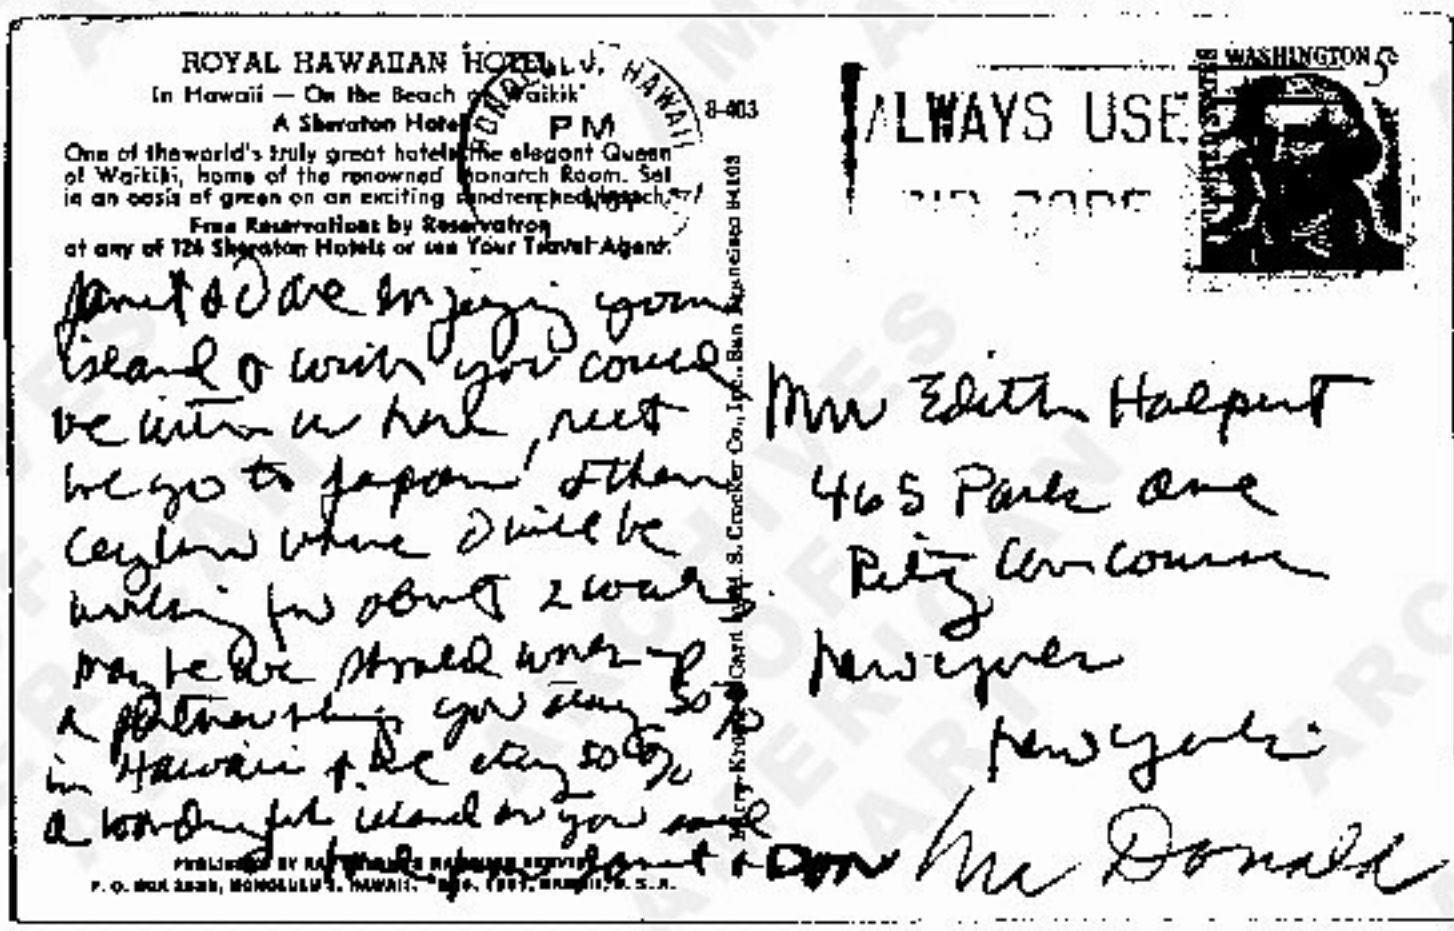 ROYAL HAWAIIAN HOTEL
In Hawaii — On the Beach at Waikiki
A Sheraton Hotel
One of theworld's truly great hotels the elegant Queen
of Waikiki, home of the renowned Monarch Room. Set
in an oasis of green on an exciting sundrenched beach.
Free Reservations by Reservatron
at any of 126 Sheraton Hotels or see Your Travel Agent.
HONOLULU, HAWAII
PM
8-403
ALWAYS USE
ZIP CODE
WASHINGTON 5c
UNITED STATES
Janet & I are enjoying your
island & wish you could
be with us here, next
we go to Japan, & then
Ceylon where I will be
working for about 2 weeks
maybe we should work up
a partnership you stay 50%
in Hawaii & we stay 50%
a wonderful island as you said
Janet & Don
H. S. Crocker Co., Inc., San Francisco 94103
Mrs Edith Halpert
465 Park Ave
Ritz Concourse
New York
New York
Mc Donald
PUBLISHED BY
HONOLULU, HAWAII, U.S.A.
ARCHIVES
OF
AMERICAN
ART